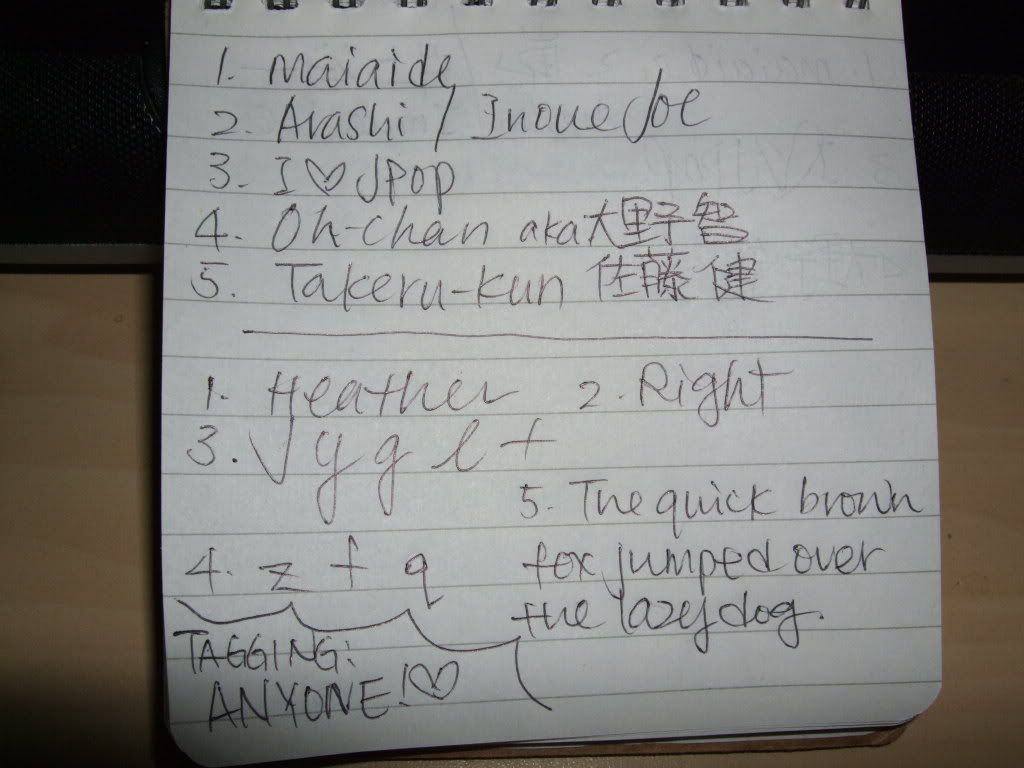 1. maiaide
2. Arashi / Inoue Joe
3. I ♡ JPOP
4. Oh-chan aka 大野智
5. Takeru-kun 佐藤 健
1. Heather 2. Right
3. J y g l t
4. z f q
5. The quick brown
fox jumped over
the lazy dog.
TAGGING:
ANYONE!♡